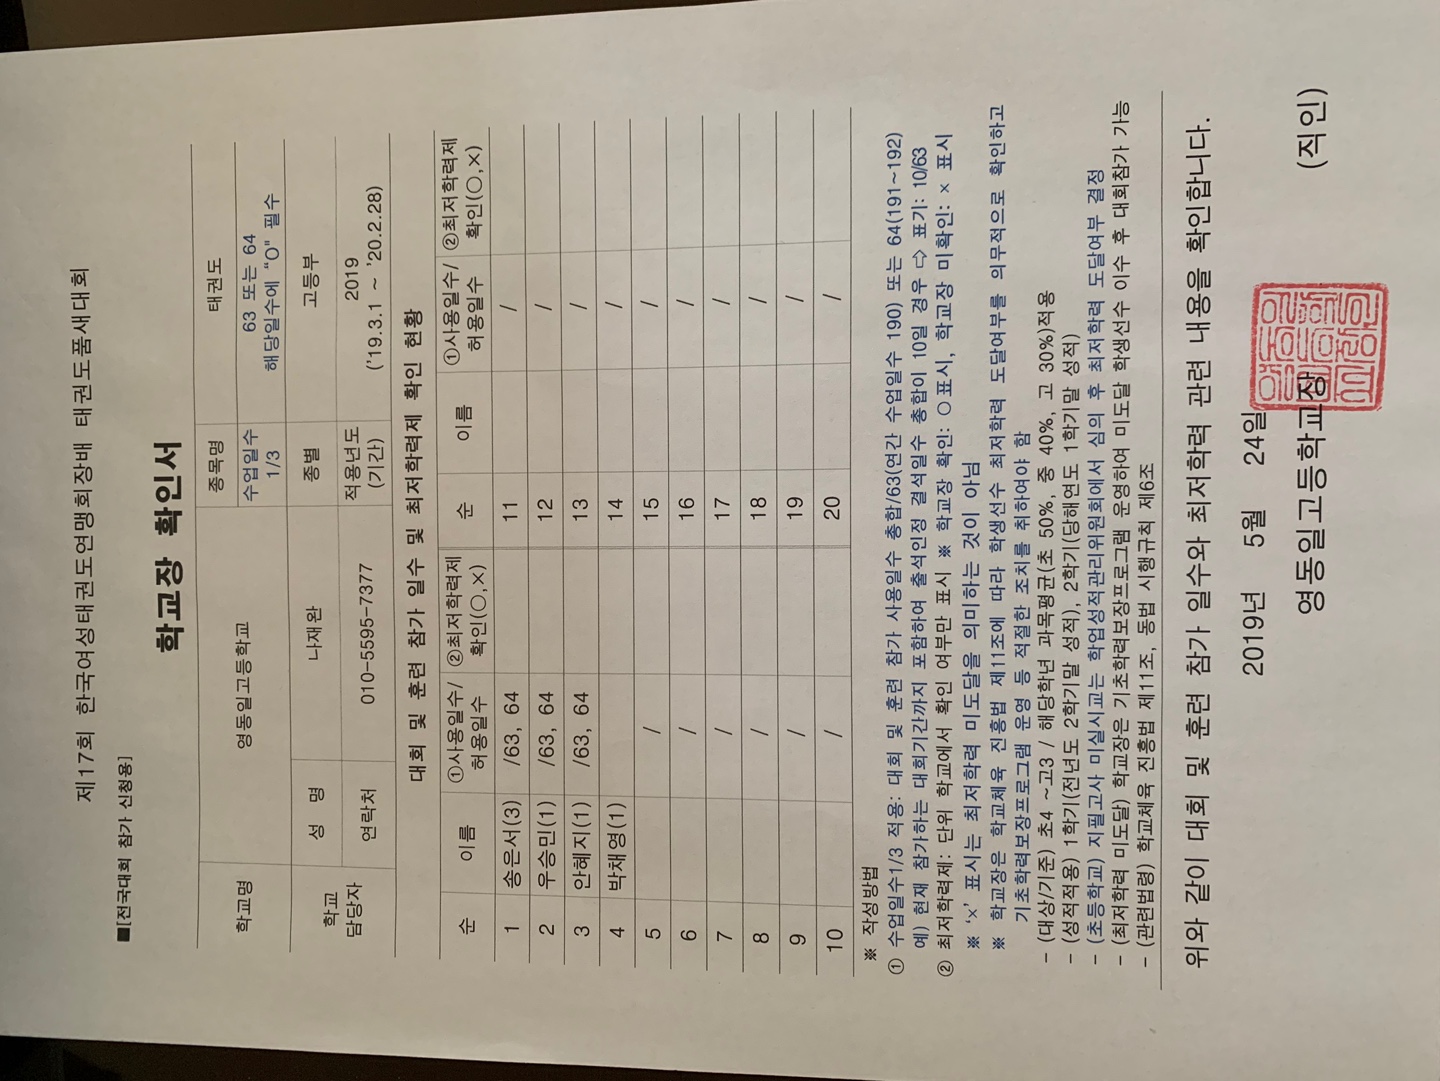 제17회 한국여성태권도연맹회장배 태권도품새대회
■[전국대회 참가 신청용]
학교장 확인서
학교명 영동일고등학교 종목명 태권도
수업일수 1/3 63 또는 64 해당일수에 "O" 필수
학교 담당자 성 명 나재완 종별 고등부
연락처 010-5595-7377 적용년도 (기간) 2019 ('19.3.1 ~ '20.2.28)
대회 및 훈련 참가 일수 및 최저학력제 확인 현황
순 이름 ①사용일수/허용일수 ②최저학력제 확인(○,×) 순 이름 ①사용일수/허용일수 ②최저학력제 확인(○,×)
1 송은서(3) /63, 64 11 /
2 우승민(1) /63, 64 12 /
3 안혜지(1) /63, 64 13 /
4 박채영(1) 14 /
5 / 15 /
6 / 16 /
7 / 17 /
8 / 18 /
9 / 19 /
10 / 20 /
※ 작성방법
① 수업일수1/3 적용: 대회 및 훈련 참가 사용일수 총합/63(연간 수업일수 190) 또는 64(191~192)
예) 현재 참가하는 대회기간까지 포함하여 출석인정 결석일수 총합이 10일 경우 ⇨ 표기: 10/63
② 최저학력제: 단위 학교에서 확인 여부만 표시 ※ 학교장 확인: ○표시, 학교장 미확인: × 표시
※ '×' 표시는 최저학력 미도달을 의미하는 것이 아님
※ 학교장은 학교체육 진흥법 제11조에 따라 학생선수 최저학력 도달여부를 의무적으로 확인하고
기초학력보장프로그램 운영 등 적절한 조치를 취하여야 함
- (대상/기준) 초4 ~고3 / 해당학년 과목평균(초 50%, 중 40%, 고 30%)적용
- (성적적용) 1학기(전년도 2학기말 성적), 2학기(당해연도 1학기말 성적)
- (초등학교) 지필고사 미실시교는 학업성적관리위원회에서 심의 후 최저학력 도달여부 결정
- (최저학력 미도달) 학교장은 기초학력보장프로그램 운영하여 미도달 학생선수 이수 후 대회참가 가능
- (관련법령) 학교체육 진흥법 제11조, 동법 시행규칙 제6조
위와 같이 대회 및 훈련 참가 일수와 최저학력 관련 내용을 확인합니다.
2019년 5월 24일
영동일고등학교장 (직인)